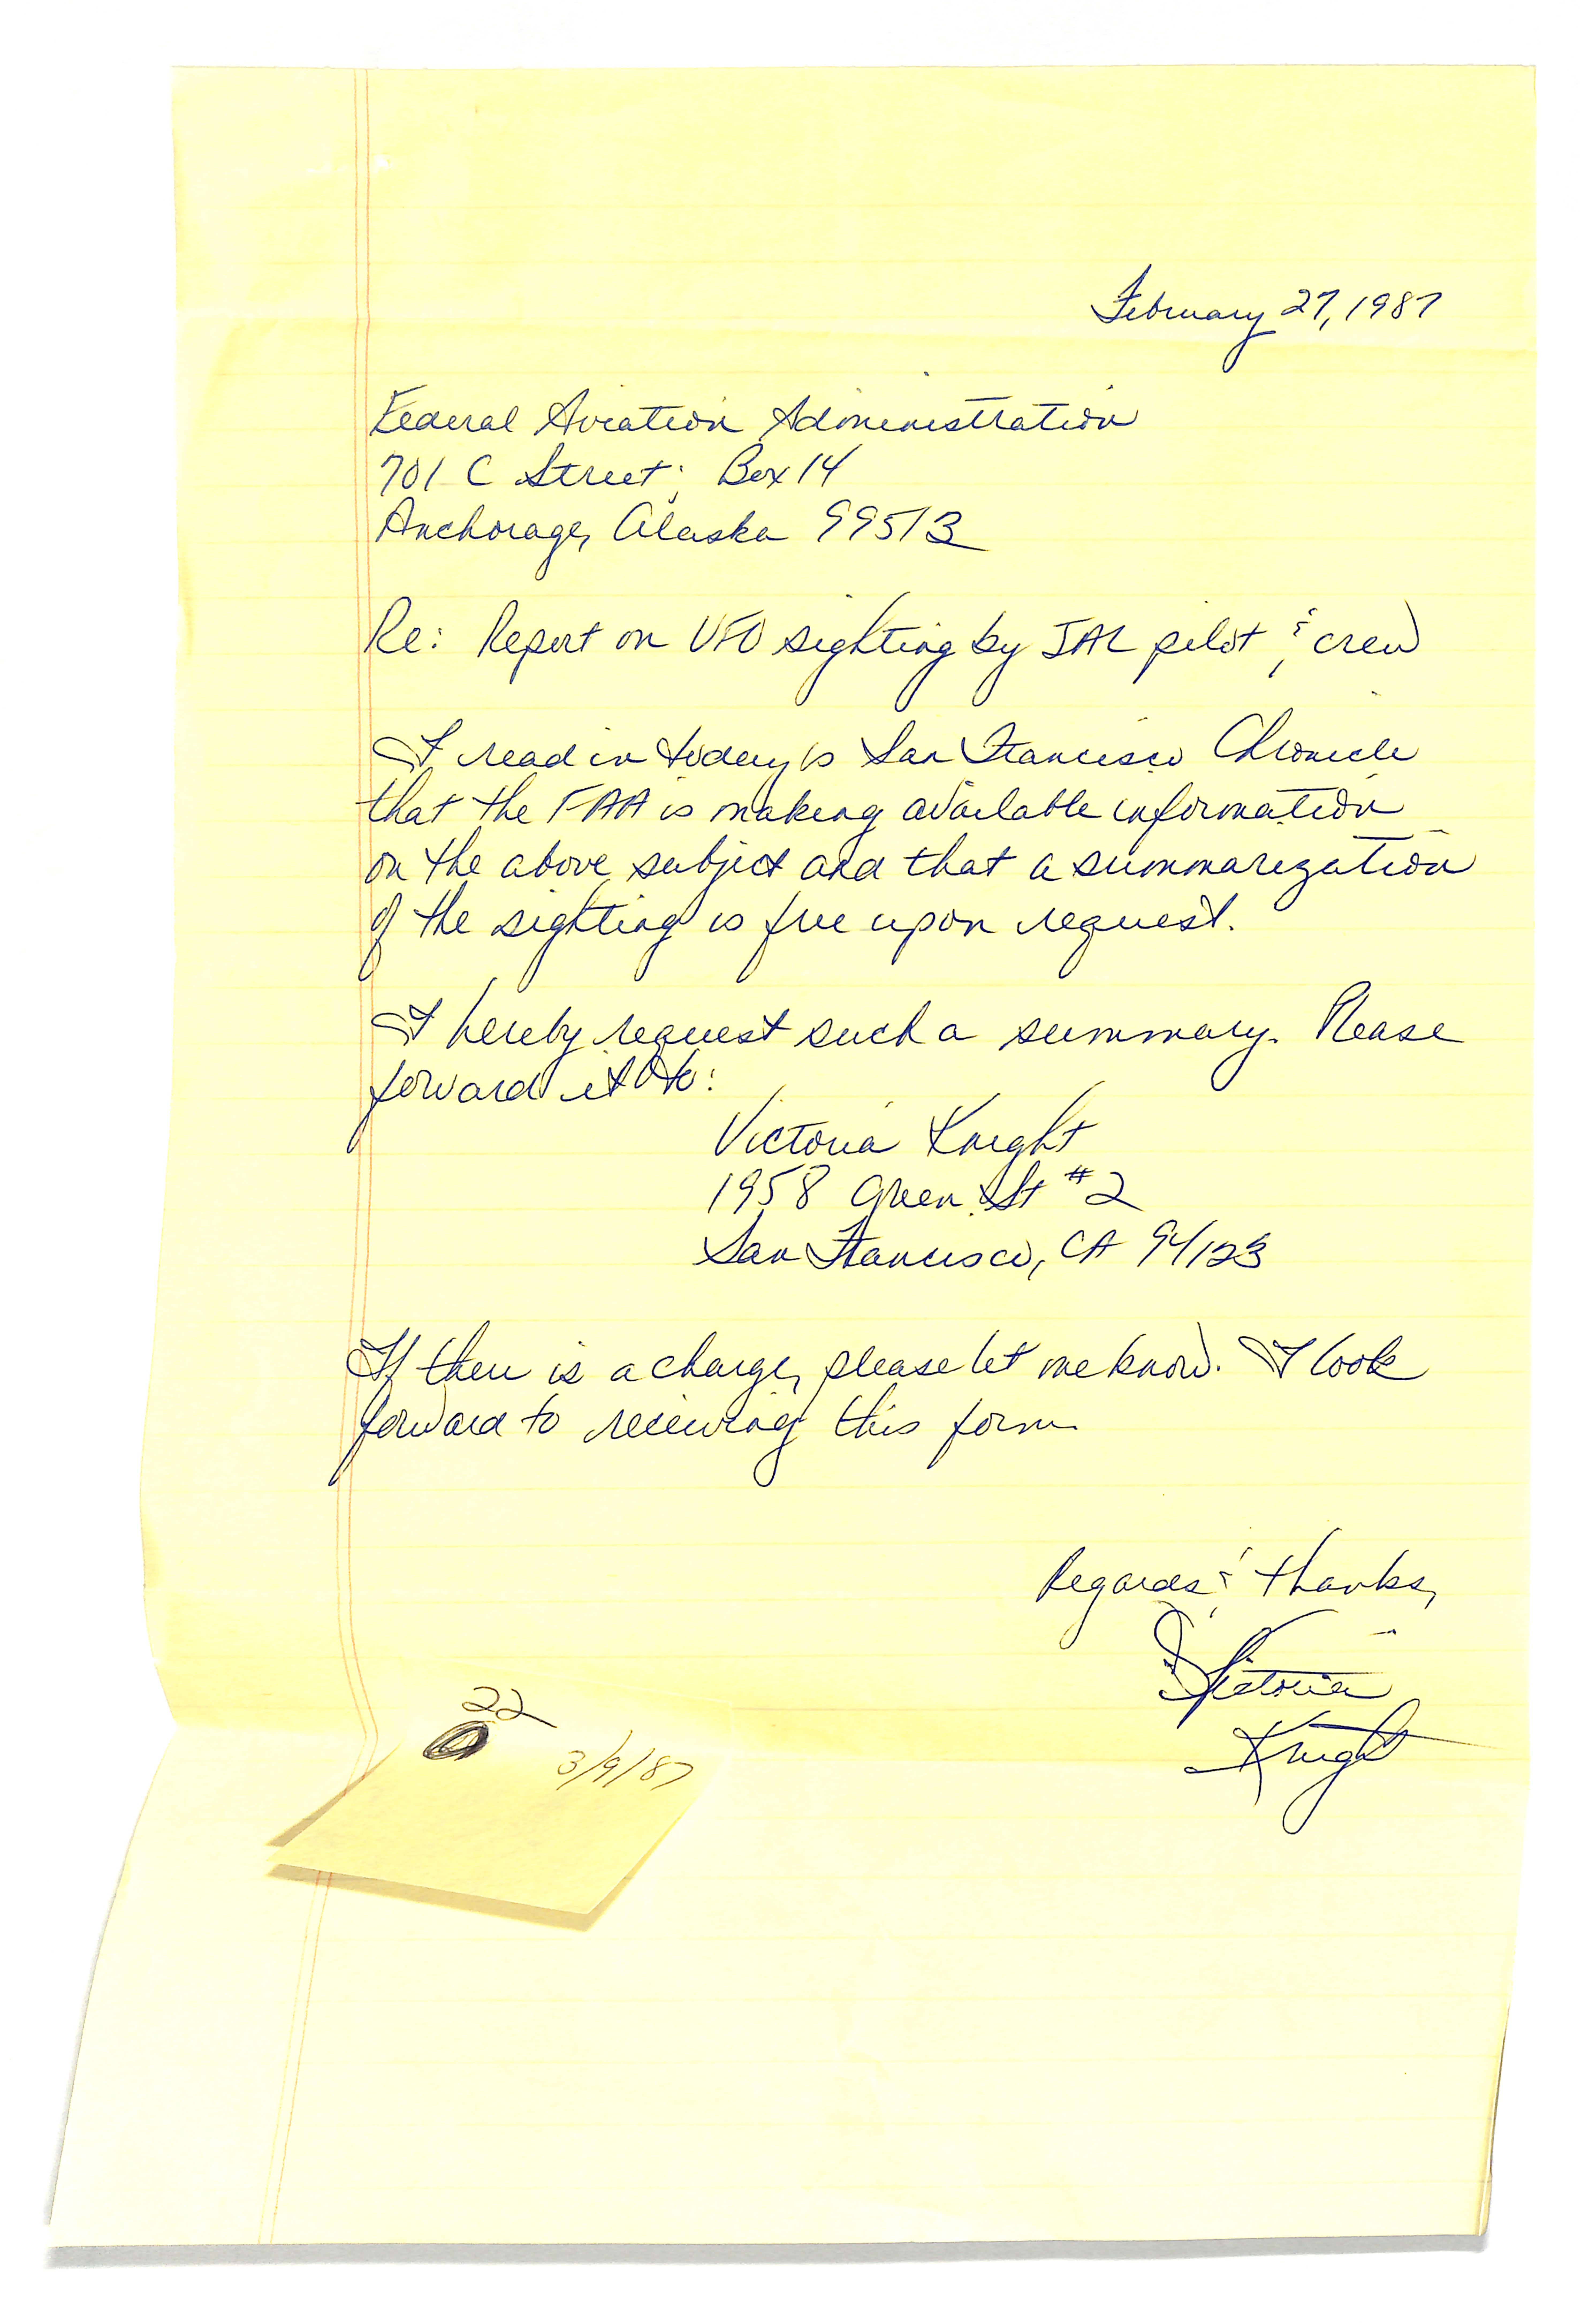 February 27, 1987
Federal Aviation Administration
701 C Street; Box 14
Anchorage, Alaska 99513
Re: Report on UFO sighting by JAL pilot & crew
I read in today's San Francisco Chronicle
that the FAA is making available information
on the above subject and that a summarization
of the sighting is free upon request.
I hereby request such a summary. Please
forward it to:
Victoria Knight
1958 Green St #2
San Francisco, CA 94123
If there is a charge, please let me know. I look
forward to receiving this form
Regards & thanks,
Victoria
Knight
22
3/9/87